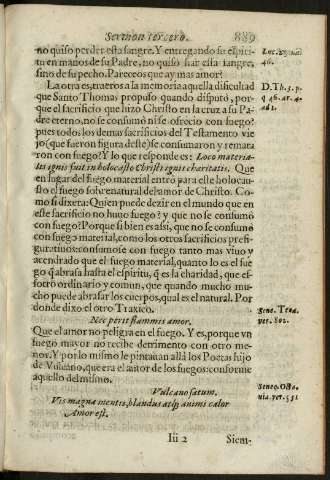 Sermon tercero. 889
no quiso perder esta sangre. Y entregando su espiri-
tu en manos de su Padre, no quiso fiar esta sangre,
sino de su pecho. Pareceos que ay mas amor?
La otra es, traeros a la memoria aquella dificultad
que Santo Thomas propuso quando disputò, por-
que el sacrificio que hizo Christo en la cruz a su Pa-
dre eterno, no se consumò ni se ofrecio con fuego?
pues todos los demas sacrificios del Testamento vie
jo (que fueron figura deste) se consumaron y remata
ron con fuego? Y lo que responde es: Loco materia-
lis ignis fuit in holocausto Christi ignis charitatis. Que
en lugar del fuego material entrò para este holocau-
sto el fuego sobrenatural del amor de Christo. Co-
mo si dixera: Quien puede dezir en el mundo que en
esse sacrificio no huuo fuego? y que no se consumò
con fuego? Porque si bien es assi, que no se consumò
con fuego material, como los otros sacrificios presi-
guratiuos: consumose con fuego tanto mas viuo y
acendrado que el fuego material, quanto lo es el fue
go q̃ abrasa hasta el espiritu, q̃ es la charidad, que es-
sotro ordinario y comun, que quando mucho mu-
cho puede abrasar los cuerpos, qual es el natural. Por
donde dixo el otro Traxico.
Nec perit flammis amor.
Que el amor no peligra en el fuego. Y es, porque vn
fuego mayor no recibe detrimento con otro me-
nor. Y por lo mismo le pintauan allà los Poetas hijo
de Vulcano, que era el autor de los fuegos: conforme
aquello del mismo.
Vulcano satum.
Vis magna mentis, blandus atq; animi calor
Amor est.
Iii 2 Siem-
46.
D. Th. 3. p.
q 46. ar. 4.
ad 1.
ver. 802.